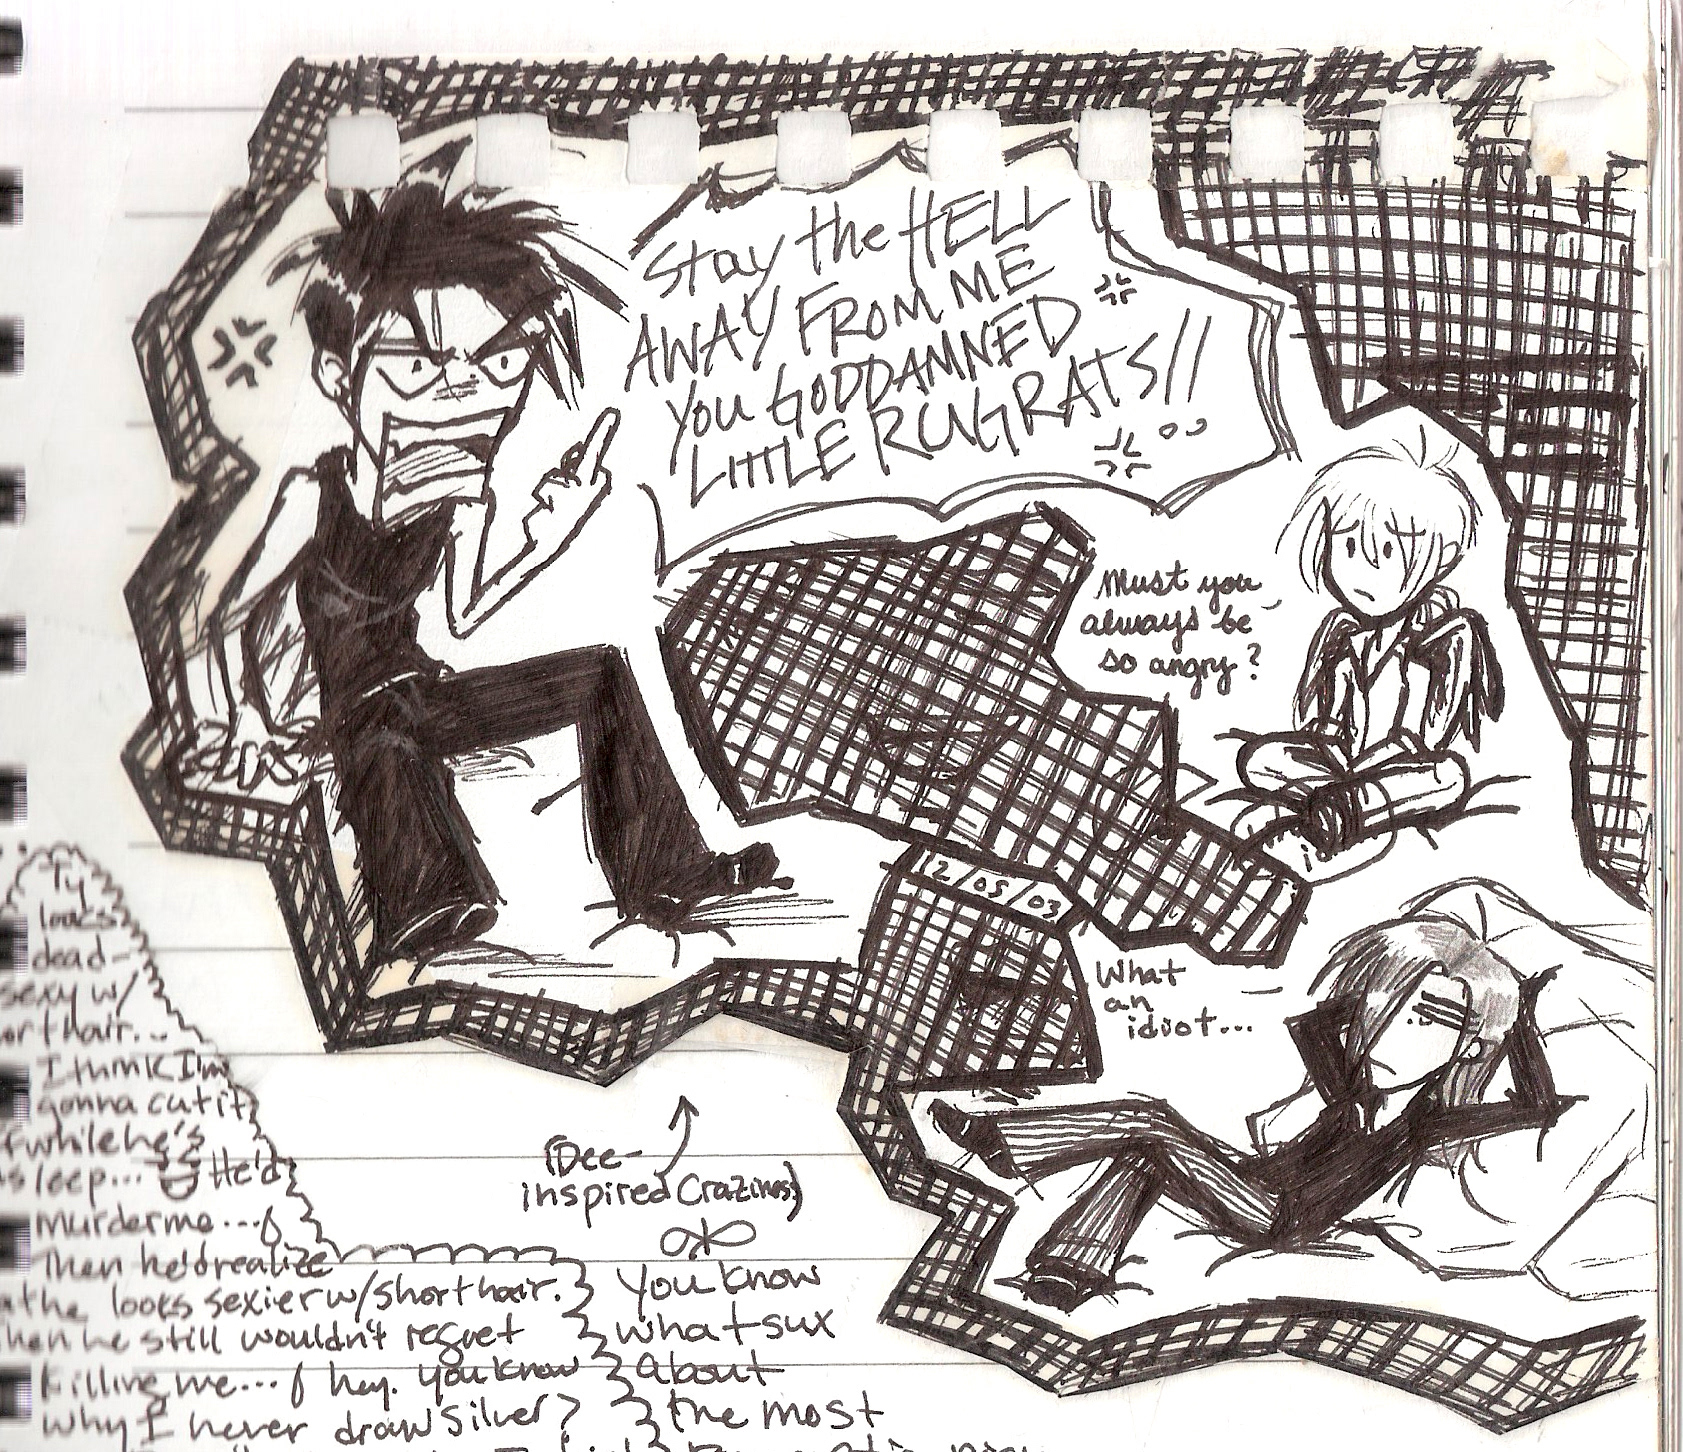 Stay the HELL
AWAY FROM ME
YOU GODDAMNED
LITTLE RUGRATS!!
Must you
always be
so angry?
12/05/03
What
an
idiot...
Dee-
inspired Craziness
Ty
looks
dead-
sexy w/
hair...
I think I'm
gonna cut it
while he's
He'd
murder me...
Then he'd realize
he looks sexier w/ short hair.
he still wouldn't regret
killing me... hey. you know
why I never draw Silver?
you know
what sux
about
the most